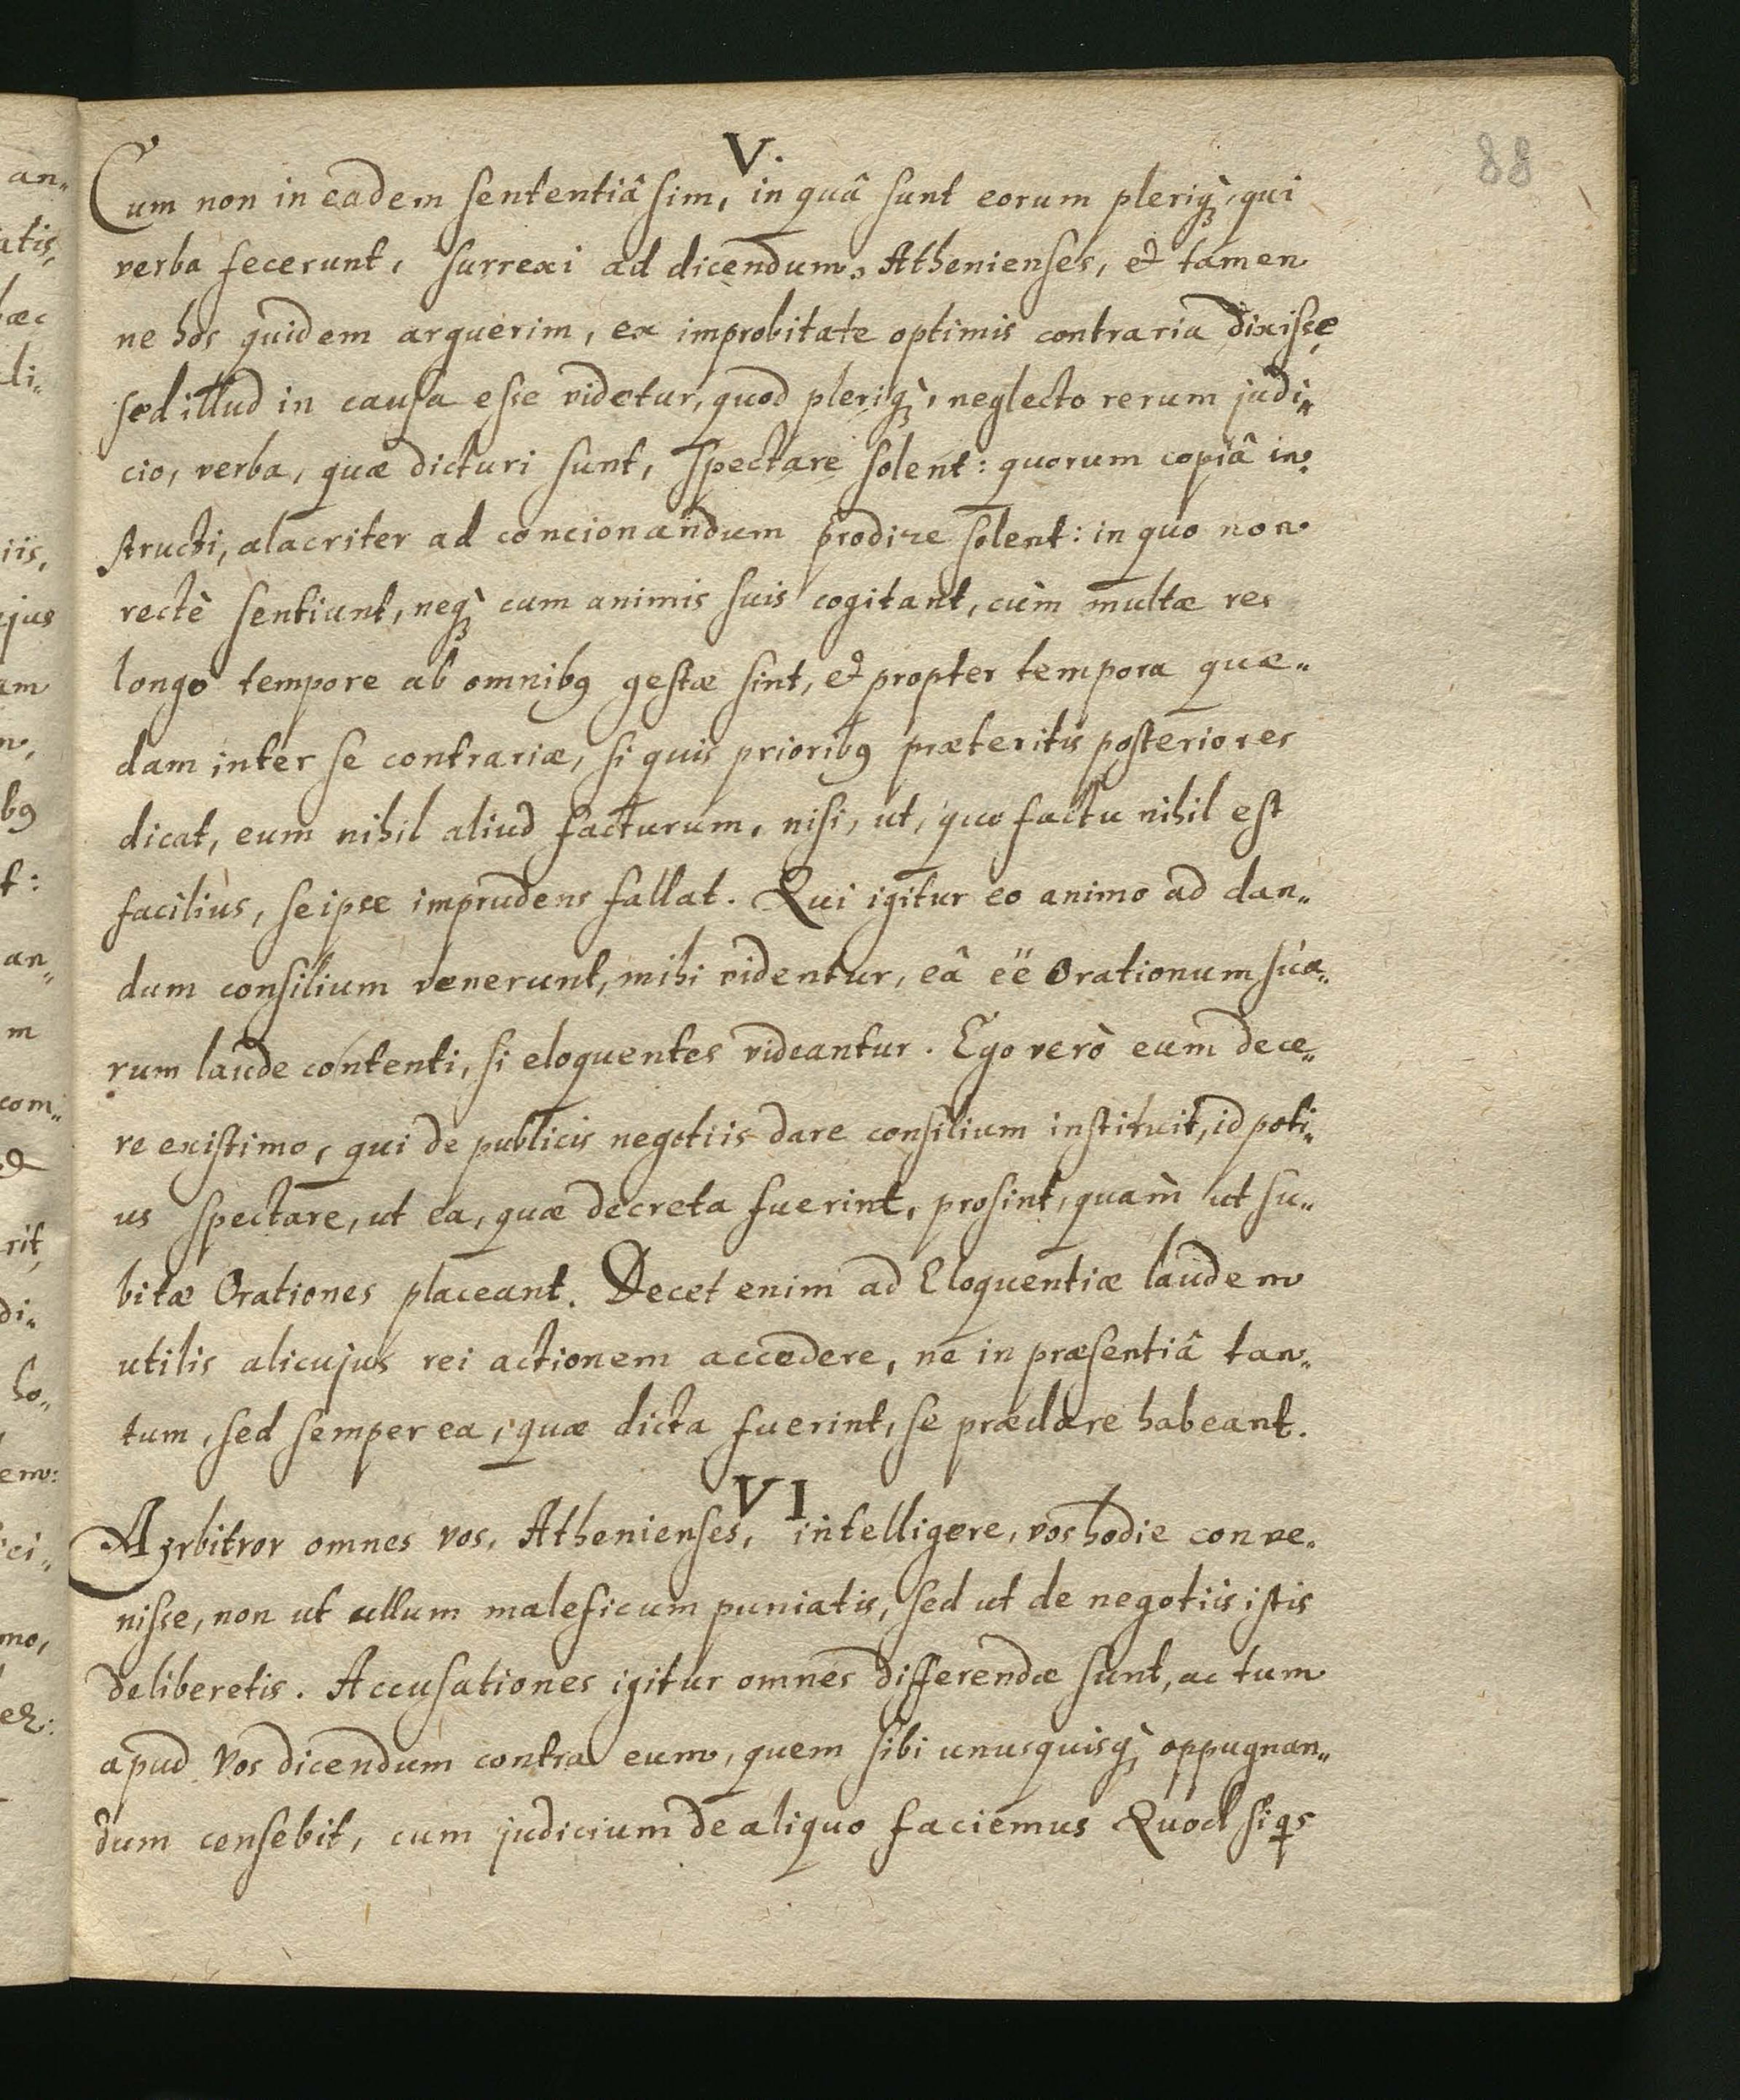 88
V.
Cum non in eadem sententiâ sim, in quâ sunt eorum pleriq̀ꝫ, qui
verba fecerunt, surrexi ad dicendum, Athenienses, & tamen
ne hos quidem arguerim, ex improbitate optimis contraria dixisse
sed illud in causa esse videtur, quod pleriq̀ꝫ, neglecto rerum judi„
cio, verba, quæ dicturi sunt, spectare solent: quorum copiâ in„
structi, alacriter ad concionandum prodire solent: in quo non
rectè sentiunt, neq̀ꝫ cum animis suis cogitant, cùm multæ res
longo tempore ab omnibꝰ gestæ sint, & propter tempora quæ„
dam inter se contrariæ, si quis prioribꝰ præteritis posteriores
dicat, eum nihil aliud facturum, nisi, ut, quo factu nihil est
facilius, seipse imprudens fallat. Qui igitur eo animo ad dan„
dum consilium venerunt, mihi videntur, eâ ëë Orationum sua„
rum laude contenti, si eloquentes videantur. Ego verò eum dece„
re existimo, qui de publicis negotiis dare consilium instituit, id poti„
us spectare, ut ea, quæ decreta fuerint, prosint, quàm ut su„
bitæ Orationes placeant. Decet enim ad Eloquentiæ laudem
utilis alicujus rei actionem accedere, ne in præsentiâ tan„
tum, sed semper ea, quæ dicta fuerint, se præclare habeant.
VI
Arbitror omnes vos, Athenienses, intelligere, vos hodie conve„
nisse, non ut ullum maleficum puniatis, sed ut de negotiis istis
deliberetis. Accusationes igitur omnes differendæ sunt, ac tum
apud vos dicendum contra eum, quem sibi unusquisq̀ꝫ oppugnan„
dum censebit, cum judicium de aliquo faciemus Quod siqs